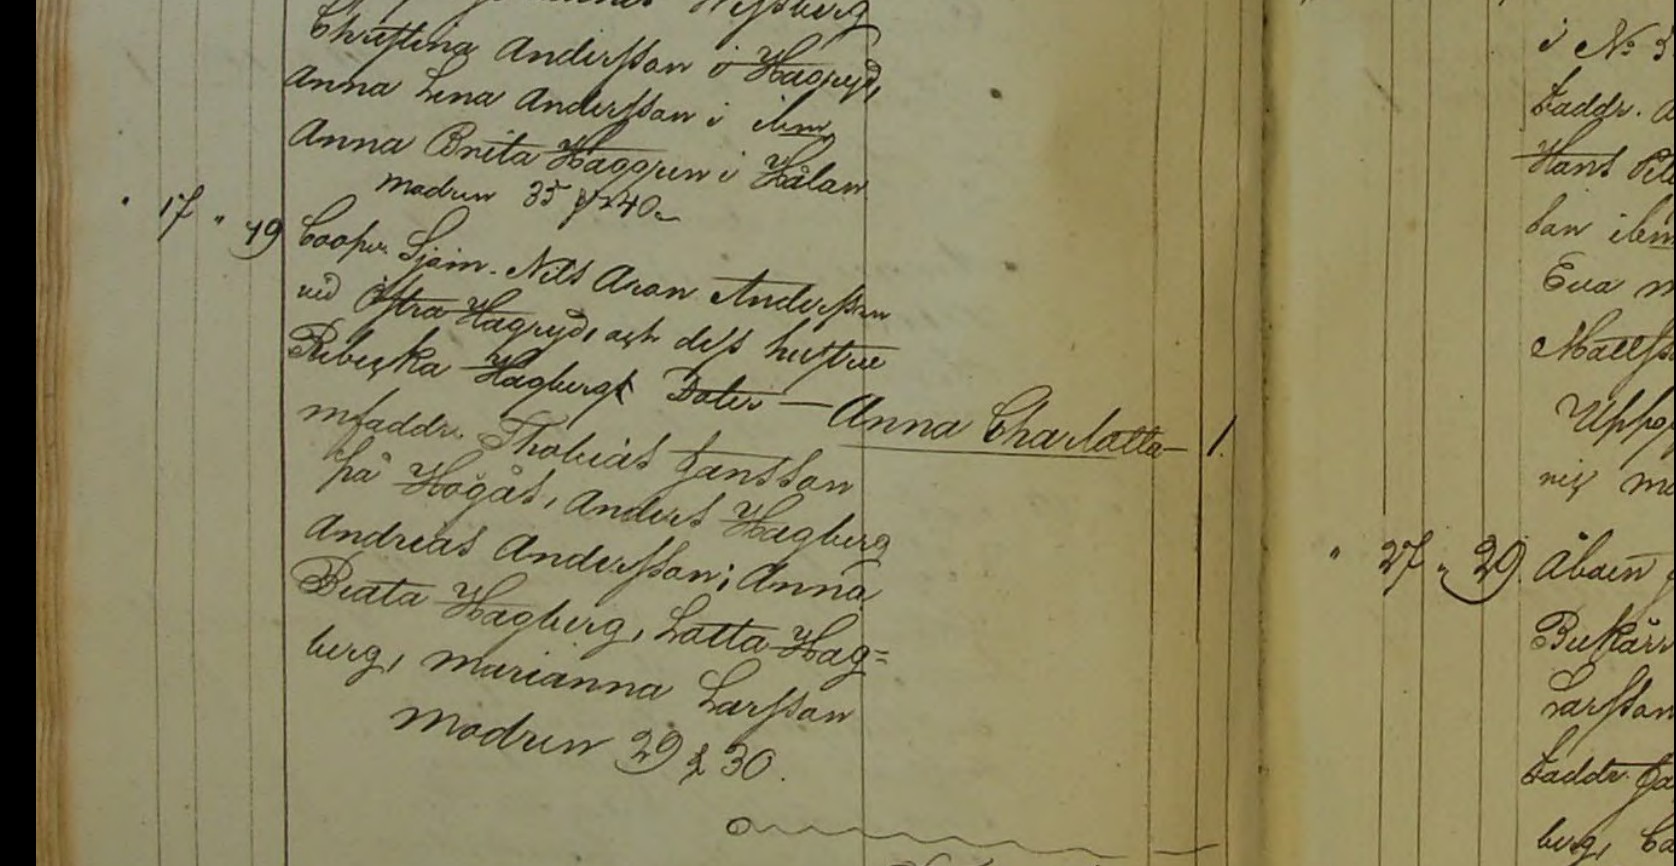 Westberg
Christina Andersson i Hagryd,
Anna Lena Andersson i ibm,
Anna Brita Haggren i Hålan
modren 35 & 40
" 17 " 19 Coopv. Sjöm. Nils Aron Andersson
vid Östra Hagryd, och dess hustru
Rebecka Hagberg Doter — Anna Charlotta — 1.
mfaddr. Thobias Jansson
på Högås, Anders Hagberg
Andreas Andersson; Anna
Beata Hagberg, Lotta Hag=
berg, Marianna Larsson
Modren 29 & 30.
i No
Faddr.
Hans
san ibm
Eva
Matts
Uppe
" 27 " 29. Åboen
Larsson
Faddr. Ja
berg,